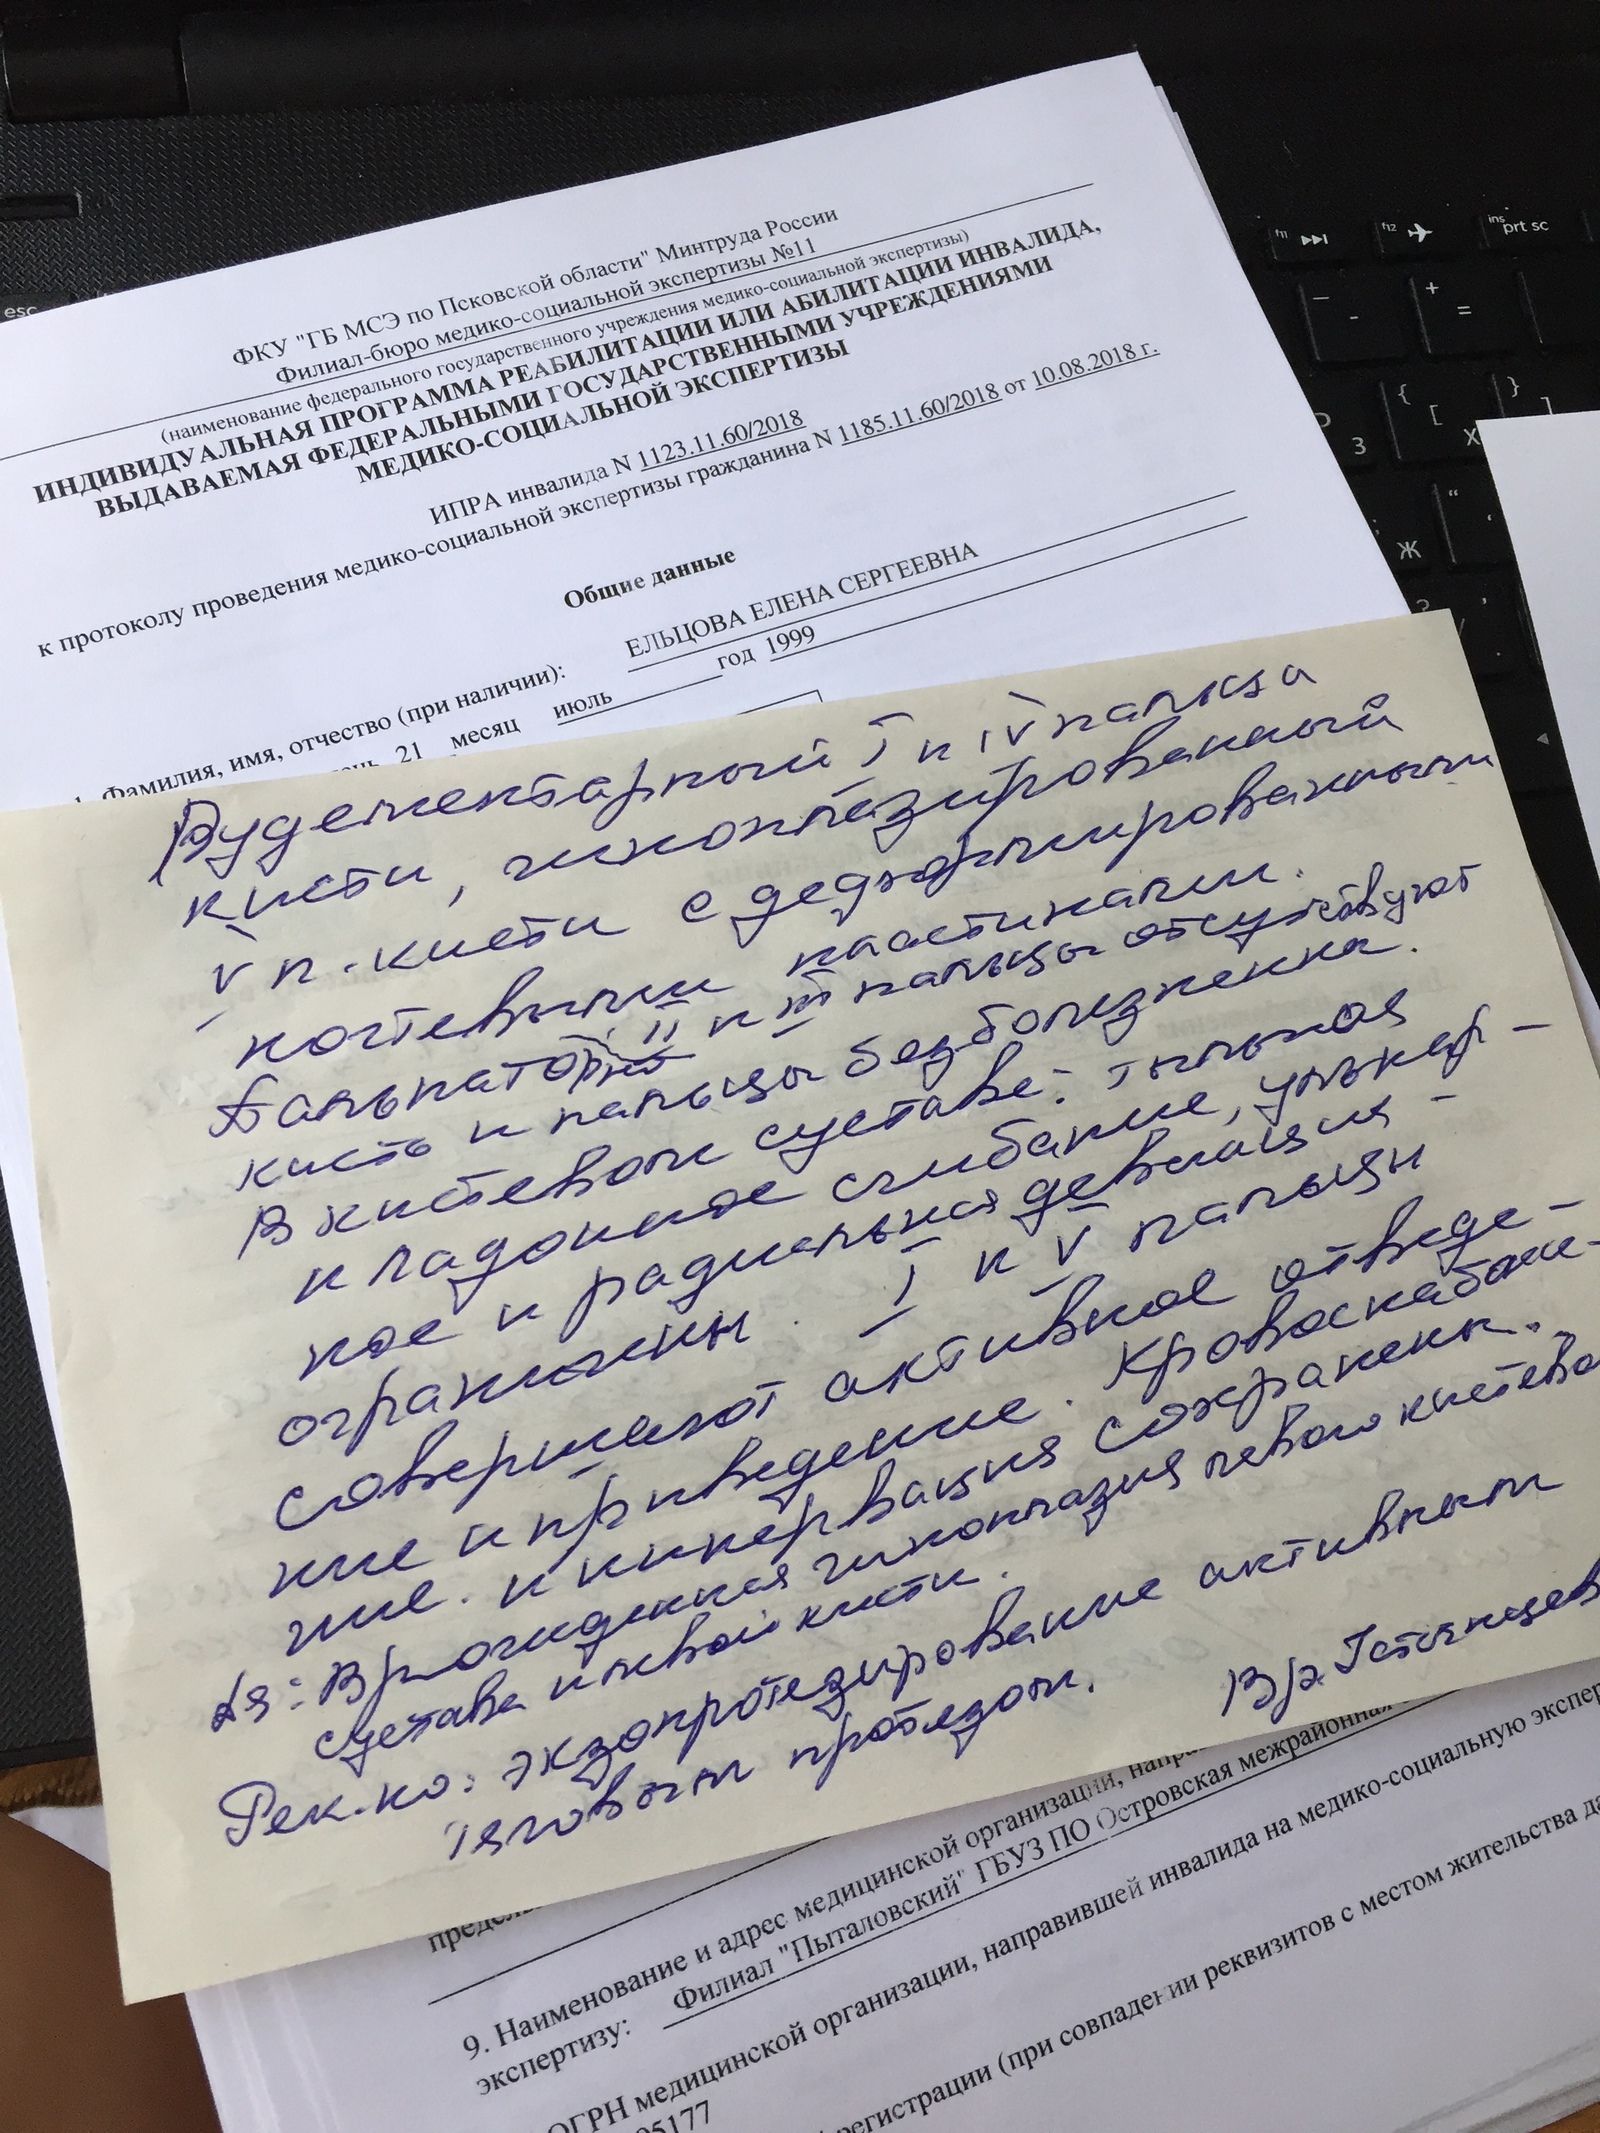 ФКУ "ГБ МСЭ по Псковской области" Минтруда России
Филиал-бюро медико-социальной экспертизы №11
(наименование федерального государственного учреждения медико-социальной экспертизы)
ИНДИВИДУАЛЬНАЯ ПРОГРАММА РЕАБИЛИТАЦИИ ИЛИ АБИЛИТАЦИИ ИНВАЛИДА,
ВЫДАВАЕМАЯ ФЕДЕРАЛЬНЫМИ ГОСУДАРСТВЕННЫМИ УЧРЕЖДЕНИЯМИ
МЕДИКО-СОЦИАЛЬНОЙ ЭКСПЕРТИЗЫ
ИПРА инвалида N 1123.11.60/2018
к протоколу проведения медико-социальной экспертизы гражданина N 1185.11.60/2018 от 10.08.2018 г.
Общие данные
1. Фамилия, имя, отчество (при наличии): ЕЛЬЦОВА ЕЛЕНА СЕРГЕЕВНА
21 месяц июль год 1999
Рудементарный I и IV пальца
кисти, гипоплазированный
V п. кисти с деформированными
ногтевыми пластинами.
II и III пальцы отсутствуют
кисть и пальцы безболезненна.
В кистевом суставе: тыльная
и ладонное сгибание, ульнар-
ное и радиальная девиация -
ограничены. I и V пальцы
совершают активное отведе-
ние и приведение. Кровоснабже-
ние и иннервация сохранены.
Дз: Врожденная гипоплазия левого кистево
сустава и левой кисти.
Рек-но: экзопротезирование активным
тяговым протезом. Вр.
предель
9. Наименование и адрес медицинской организации, направ
межрайонная
экспертизу: Филиал "Пыталовский" ГБУЗ ПО Островская
медицинской организации, направившей инвалида на медико-социальную экспер
ОГРН медицинской
регистрации (при совпадении реквизитов с местом жительства да
95177
esc
f11
f12
ins
prt sc
-
+
=
{
[
Х
}
]
З
Ж